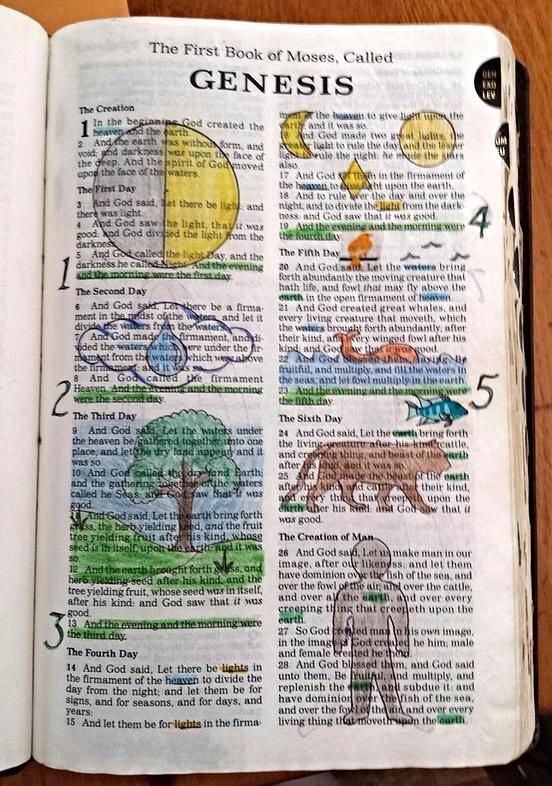 The First Book of Moses, Called
GENESIS
The Creation
1 In the beginning God created the
heaven and the earth.
2 And the earth was without form, and
void; and darkness was upon the face of
the deep. And the spirit of God moved
upon the face of the waters.
The First Day
3 And God said, Let there be light: and
there was light.
4 And God saw the light, that it was
good: and God divided the light from the
darkness.
5 And God called the light Day, and the
darkness he called Night. And the evening
and the morning were the first day.
1
The Second Day
6 And God said, Let there be a firma-
ment in the midst of the waters, and let it
divide the waters from the waters.
7 And God made the firmament, and di-
vided the waters which were under the fir-
mament from the waters which were above
the firmament: and it was so.
8 And God called the firmament
Heaven. And the evening and the morning
were the second day.
2
The Third Day
9 And God said, Let the waters under
the heaven be gathered together unto one
place, and let the dry land appear: and it
was so.
10 And God called the dry land Earth;
and the gathering together of the waters
called he Seas: and God saw that it was
good.
11 And God said, Let the earth bring forth
grass, the herb yielding seed, and the fruit
tree yielding fruit after his kind, whose
seed is in itself, upon the earth: and it was
so.
12 And the earth brought forth grass, and
herb yielding seed after his kind, and the
tree yielding fruit, whose seed was in itself,
after his kind: and God saw that it was
good.
13 And the evening and the morning were
the third day.
3
The Fourth Day
14 And God said, Let there be lights in
the firmament of the heaven to divide the
day from the night; and let them be for
signs, and for seasons, and for days, and
years:
15 And let them be for lights in the firma-
ment of the heaven to give light upon the
earth: and it was so.
16 And God made two great lights; the
light to rule the day, and the lesser
light to rule the night: he made the stars
also.
17 And God set them in the firmament of
the heaven to light upon the earth,
18 And to rule over the day and over the
night, and to divide the light from the dark-
ness: and God saw that it was good.
19 And the evening and the morning were
the fourth day.
4
The Fifth Day
20 And God said, Let the waters bring
forth abundantly the moving creature that
hath life, and fowl that may fly above the
earth in the open firmament of heaven.
21 And God created great whales, and
every living creature that moveth, which
the waters brought forth abundantly, after
their kind, and every winged fowl after his
kind: and God saw that it was good.
22 And God blessed them, saying, Be
fruitful, and multiply, and fill the waters in
the seas, and let fowl multiply in the earth.
23 And the evening and the morning were
the fifth day.
5
The Sixth Day
24 And God said, Let the earth bring forth
the living creature after his kind, cattle,
and creeping thing, and beast of the earth
after his kind: and it was so.
25 And God made the beast of the earth
after his kind, and cattle after their kind,
and every thing that creepeth upon the
earth after his kind: and God saw that it
was good.
The Creation of Man
26 And God said, Let us make man in our
image, after our likeness: and let them
have dominion over the fish of the sea, and
over the fowl of the air, and over the cattle,
and over all the earth, and over every
creeping thing that creepeth upon the
earth.
27 So God created man in his own image,
in the image of God created he him; male
and female created he them.
28 And God blessed them, and God said
unto them, Be fruitful, and multiply, and
replenish the earth, and subdue it: and
have dominion over the fish of the sea,
and over the fowl of the air, and over every
living thing that moveth upon the earth.
GEN
EXO
LEV